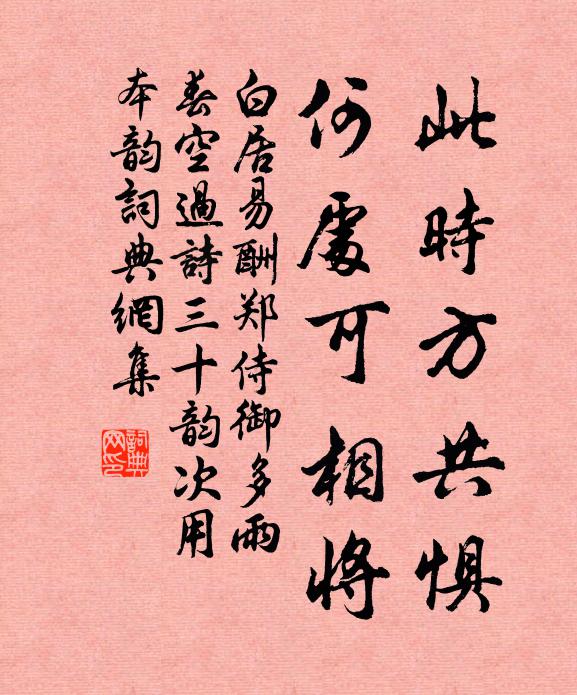 此時方共惧
何處可相將
白居易酬郑侍御多雨
春空過詩三十韵次用
本韵詞典網集
詞典
网印